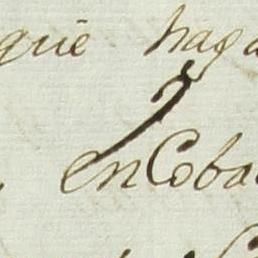 que haga
en Coba